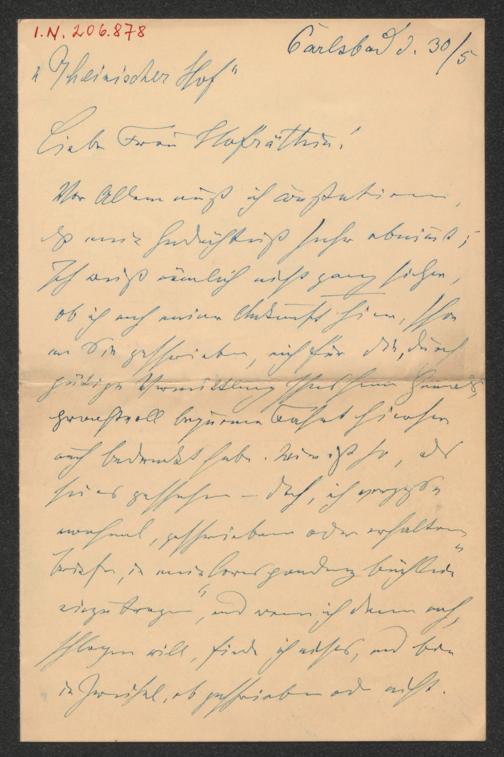 I.N. 206.878
Carlsbad d. 30/5
"Rheinischer Hof"
Liebe Frau Hofräthin!
Vor Allem muß ich constatieren,
daß mein Gedächtniß sehr abnimmt;
Ich weiß nämlich nicht ganz sicher,
ob ich nach meiner Ankunft hier, schon
an Sie geschrieben, mich für die, durch
gütige Vermittlung Ihres Herrn Gemahls
prachtvoll bequeme Fahrt hieher
auch bedankt habe. Mir ist so, als
sei es geschehen – doch, ich vergesse
manchmal, geschriebene oder erhaltene
Briefe, in mein "Correspondenz büchlein
einzutragen", und wenn ich dann nach-
schlagen will, finde ich nichts, und bin
in Zweifel, ob geschrieben oder nicht.